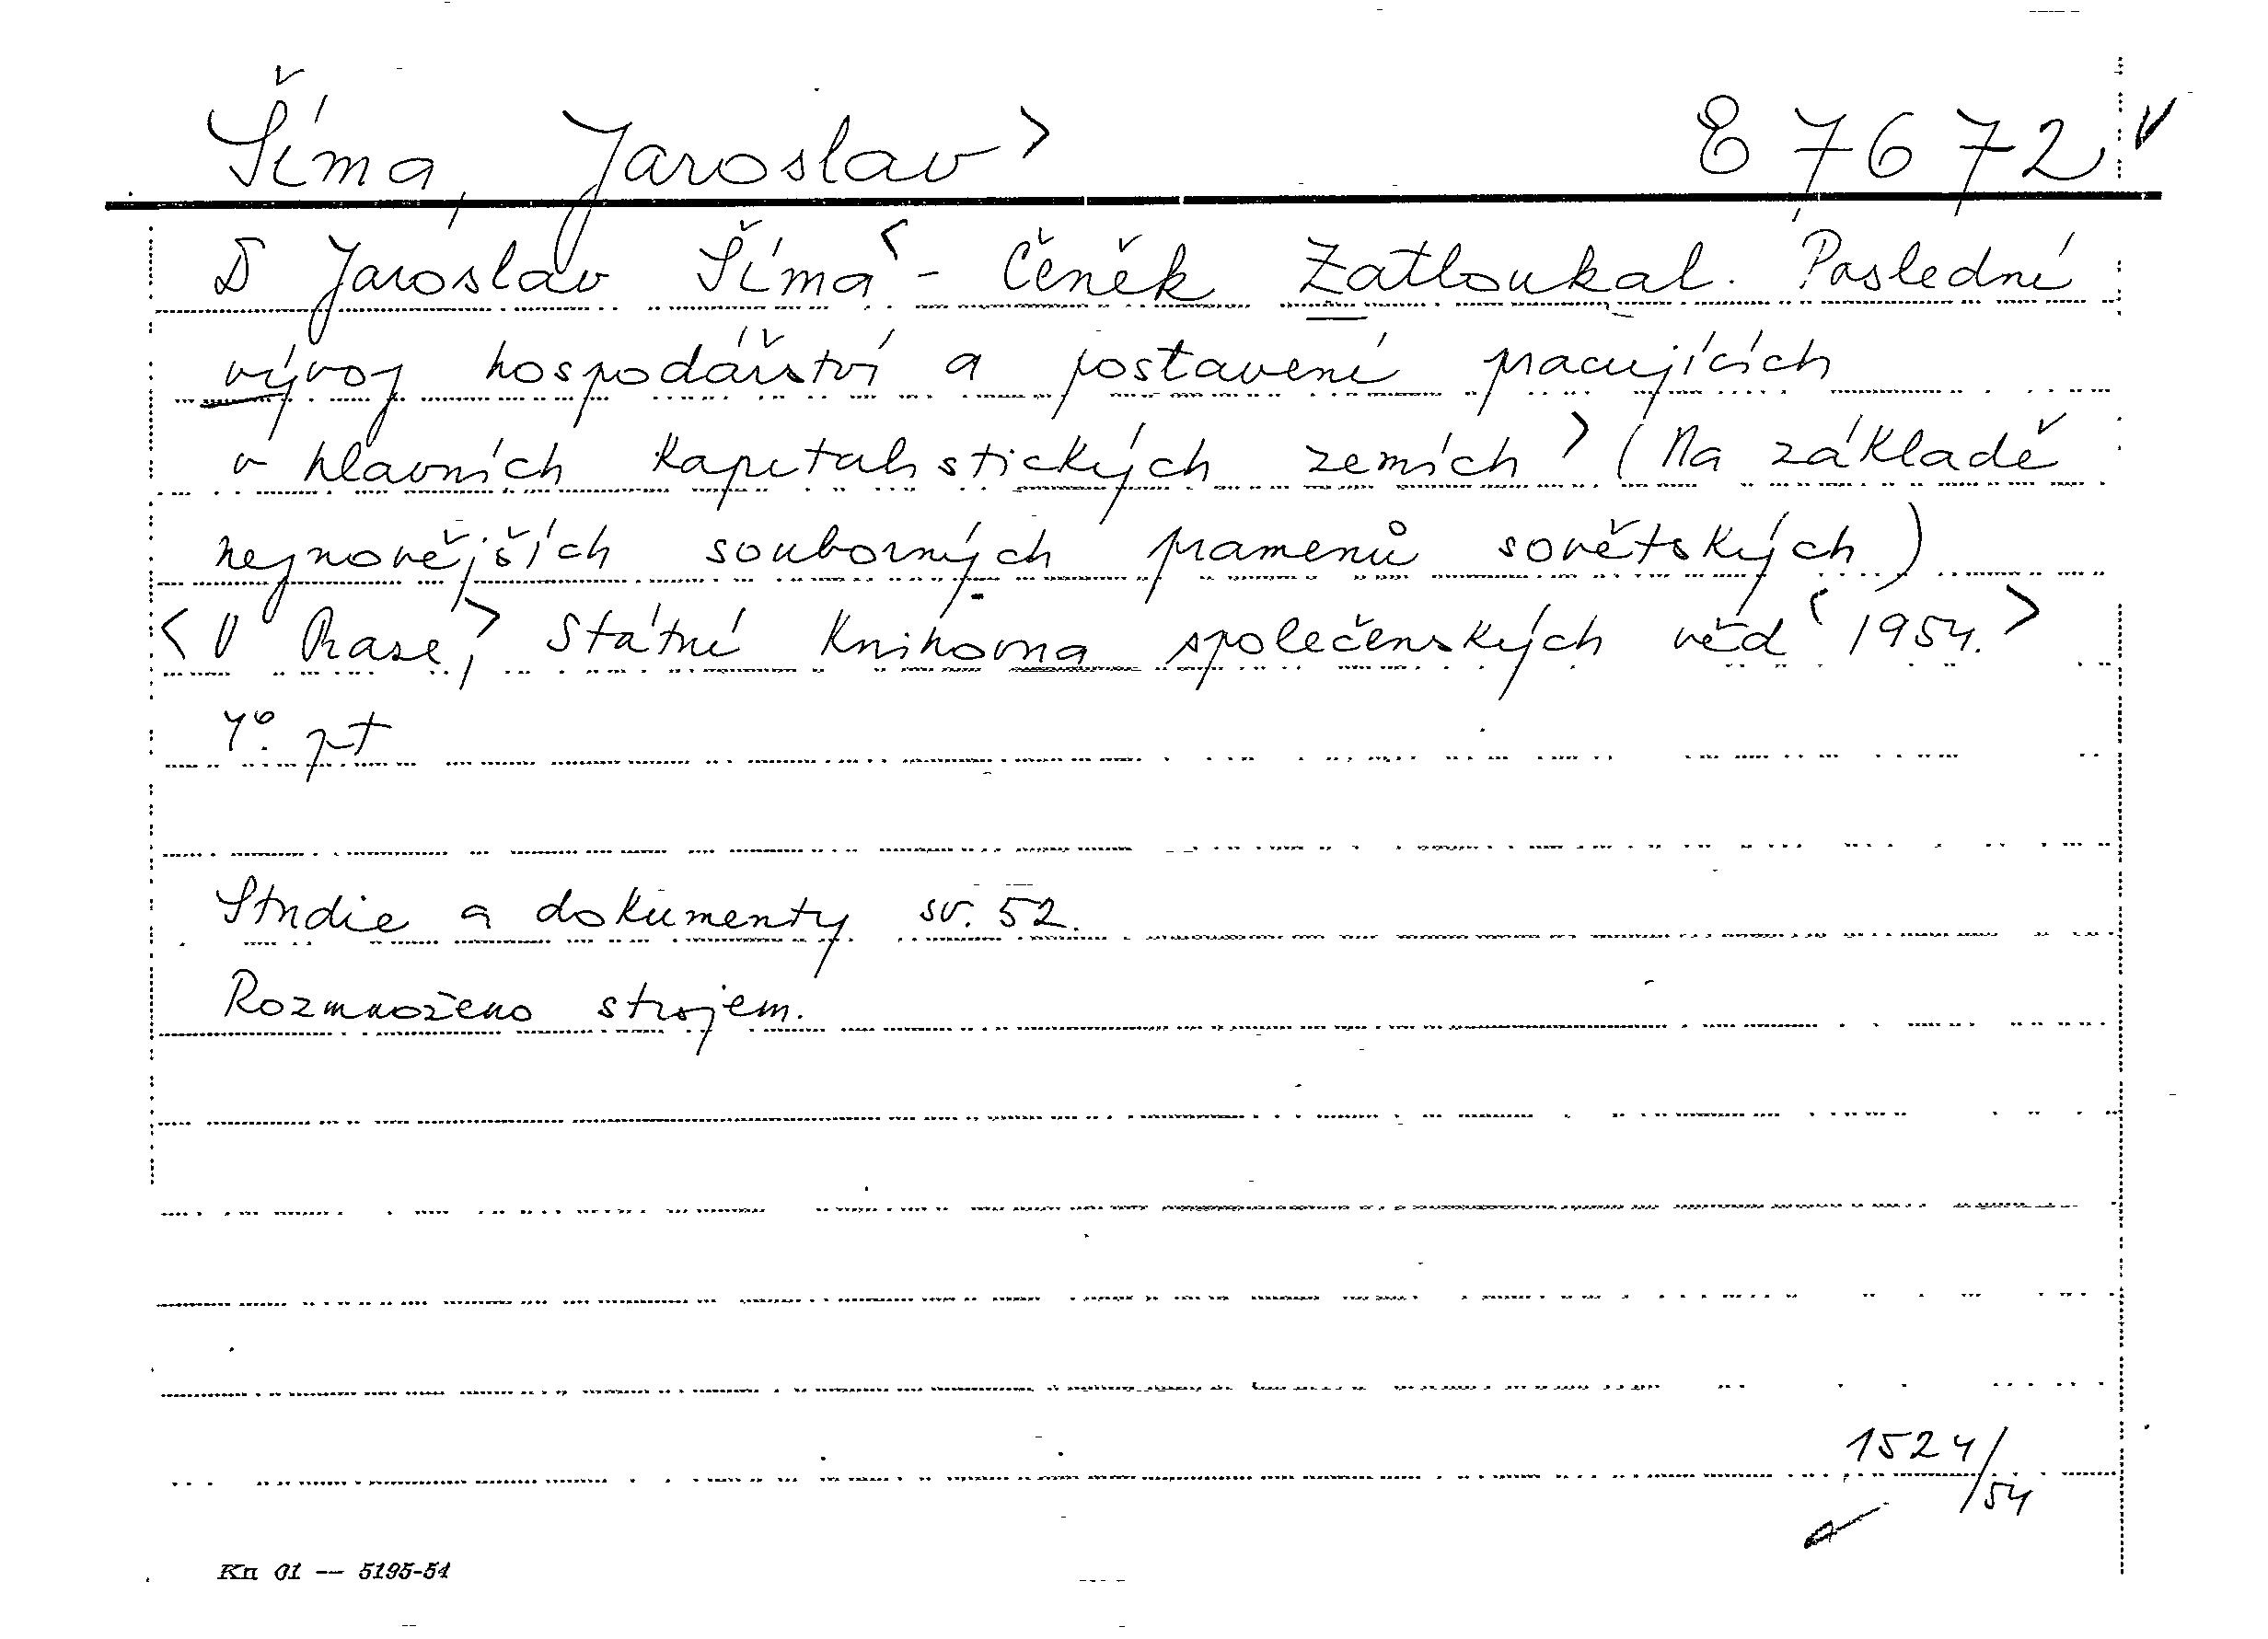 Šíma, Jaroslav> 87672 v
D Jaroslav Šíma< - Čeněk Zatloukal. Poslední
vývoj hospodářství a postavení pracujících
v hlavních kapitalistických zemích> (Na základě
nejnovějších souborných pramenů sovětských)
<V Praze,> Státní knihovna společenských věd< 1954.>
4°. pt
Studie a dokumenty sv. 52.
Rozmnoženo strojem.
1524/54
Kn 01 — 5195-54